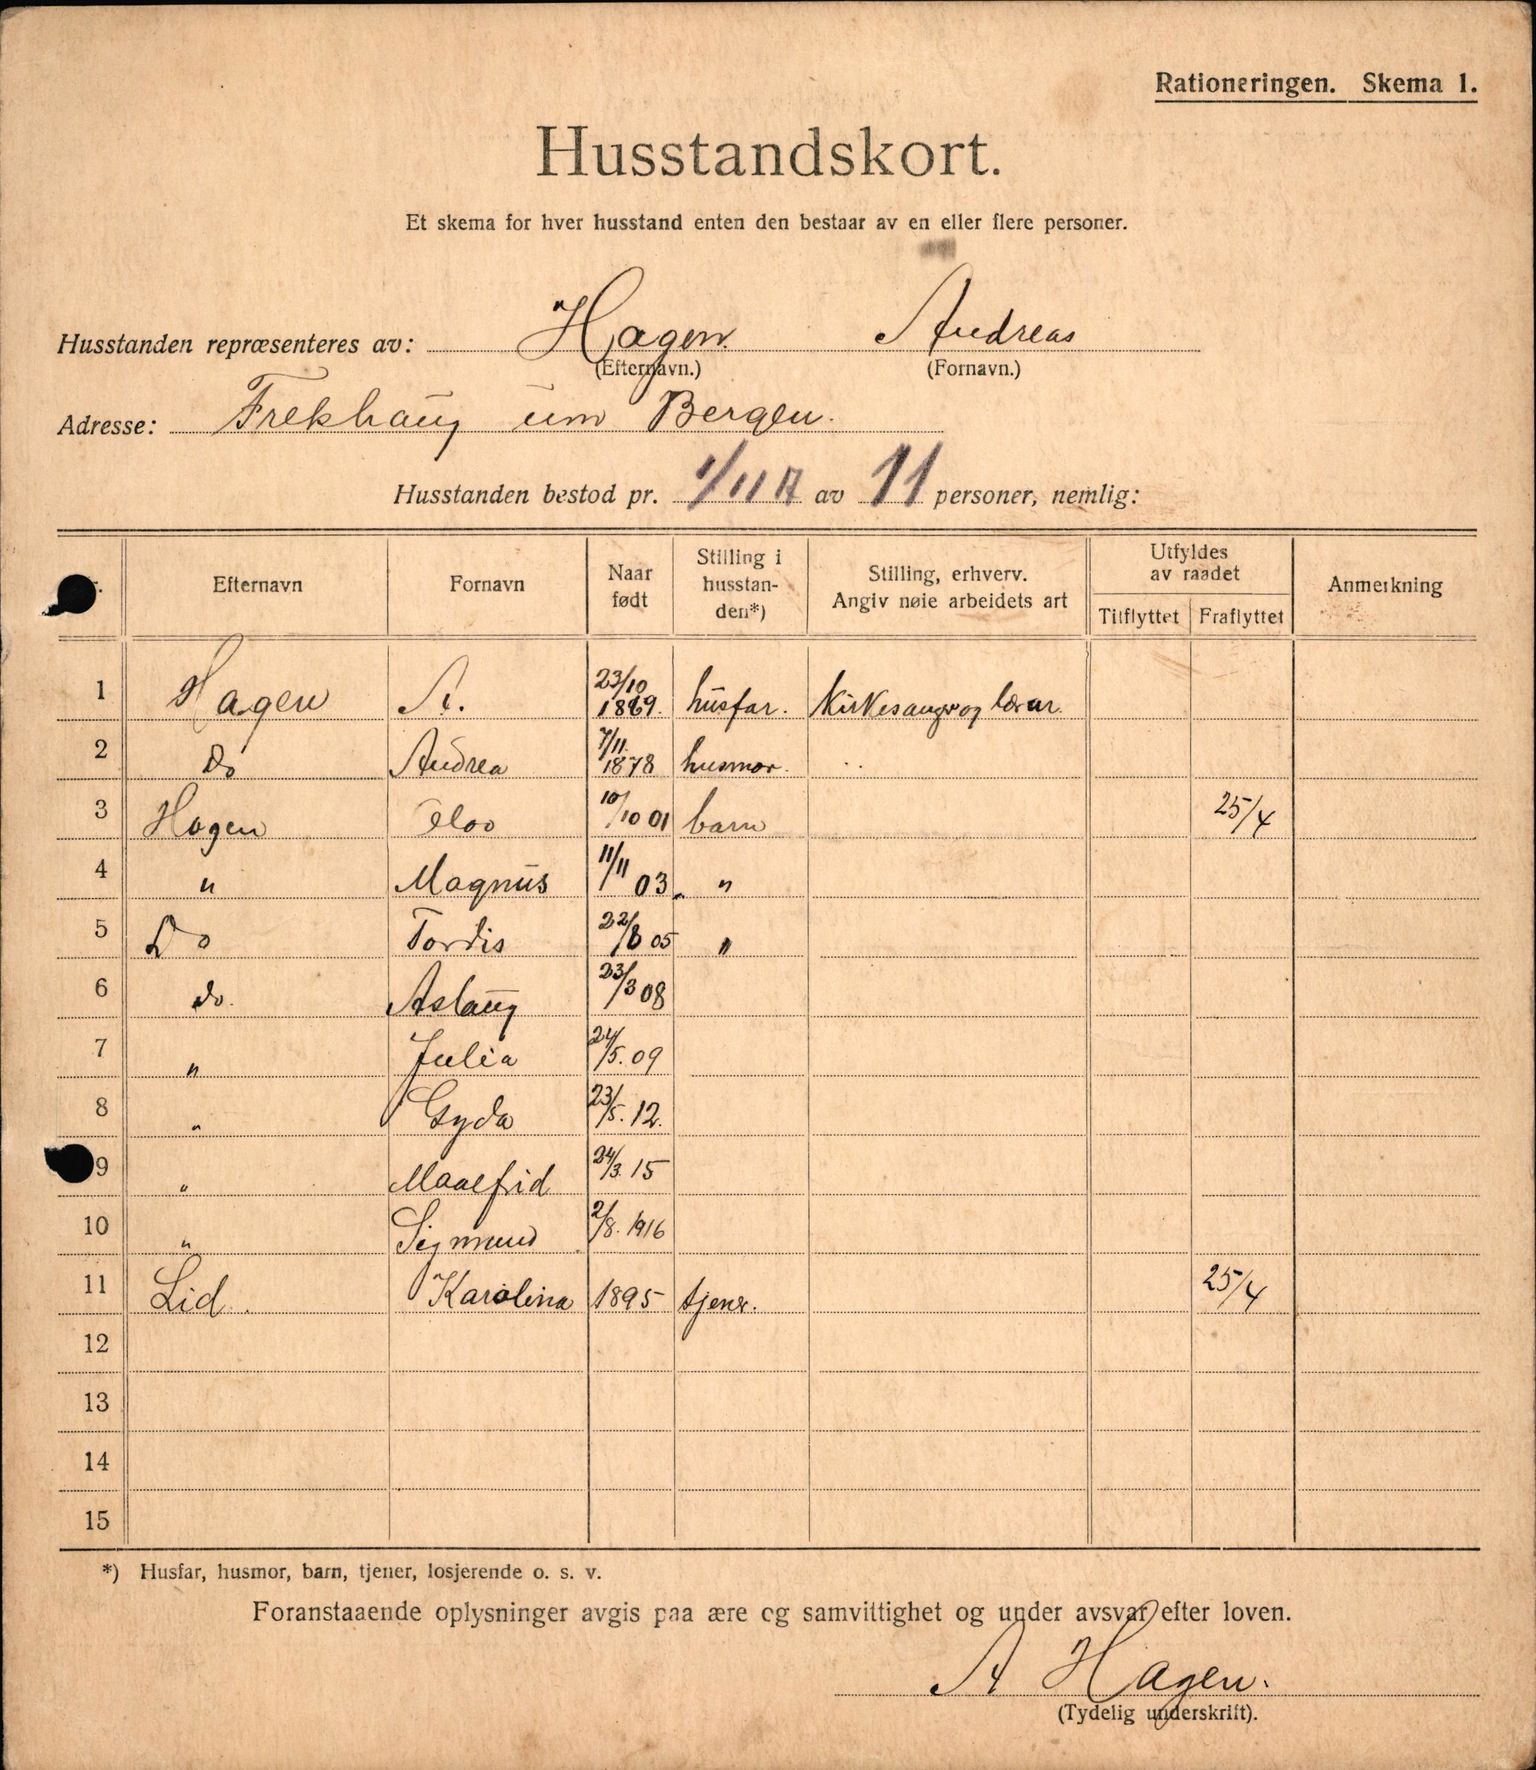 Rationeringen. Skema 1.
Husstandskort.
Et skema for hver husstand enten den bestaar av en eller flere personer.
Husstanden repræsenteres av: Hagen Andreas
(Efternavn.) (Fornavn.)
Adresse: Frekhaug um Bergen.
Husstanden bestod pr. 1/11 17 av 11 personer, nemlig:
Efternavn Fornavn Naar født Stilling i husstanden*) Stilling, erhverv. Angiv nøie arbeidets art Utfyldes av raadet Tilflyttet Fraflyttet Anmerkning
1 Hagen A. 23/10 1869. husfar. Kirkesanger og lærar.
2 Do Andrea 7/11. 1878 husmor.
3 Hagen Olav 10/10 01 barn 25/4
4 " Magnus 11/11 03 "
5 Do Tordis 22/8 05 "
6 do. Aslaug 23/3 08
7 " Julia 24/5. 09
8 " Gyda 23/5. 12.
9 " Maalfrid 24/3. 15
10 " Sigmund 2/8. 1916
11 Lid. Karolina 1895 tjener. 25/4
12
13
14
15
*) Husfar, husmor, barn, tjener, losjerende o. s. v.
Foranstaaende oplysninger avgis paa ære og samvittighet og under avsvar efter loven.
A Hagen.
(Tydelig underskrift).